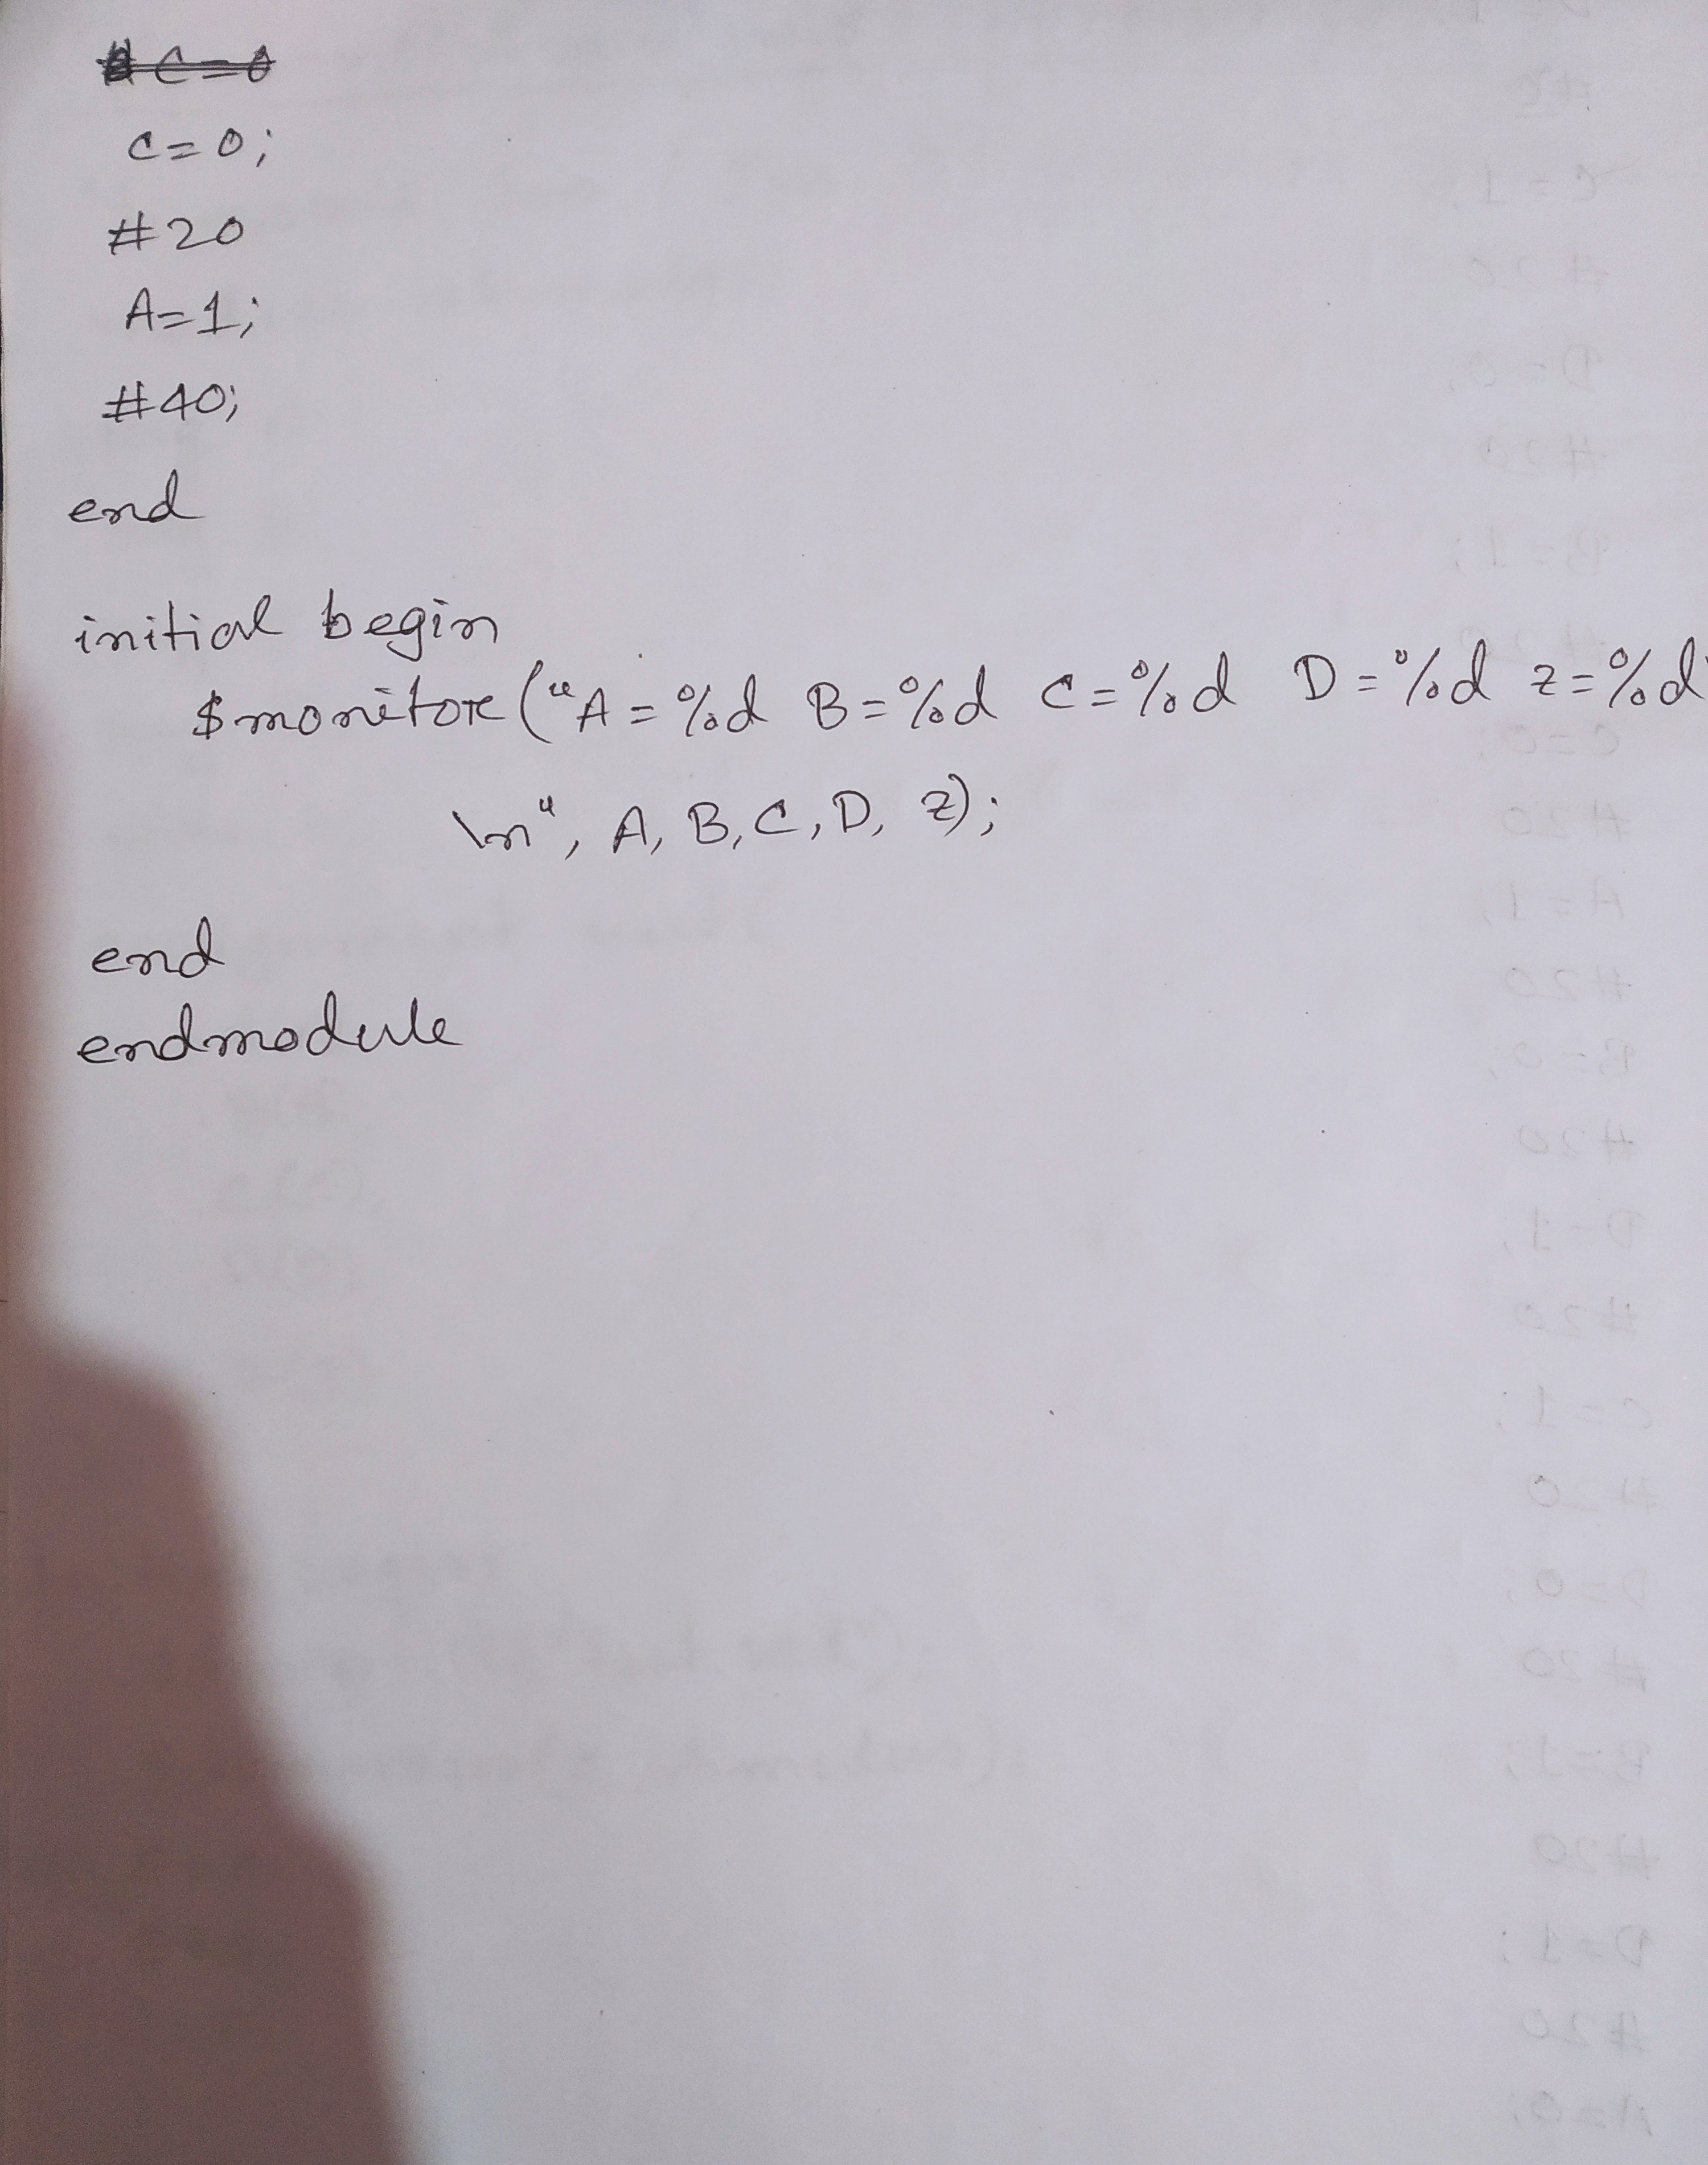 C=0;
#20
A=1;
#40;
end
initial begin
$monitor("A=%d B=%d C=%d D=%d z=%d
\n", A, B, C, D, z);
end
endmodule